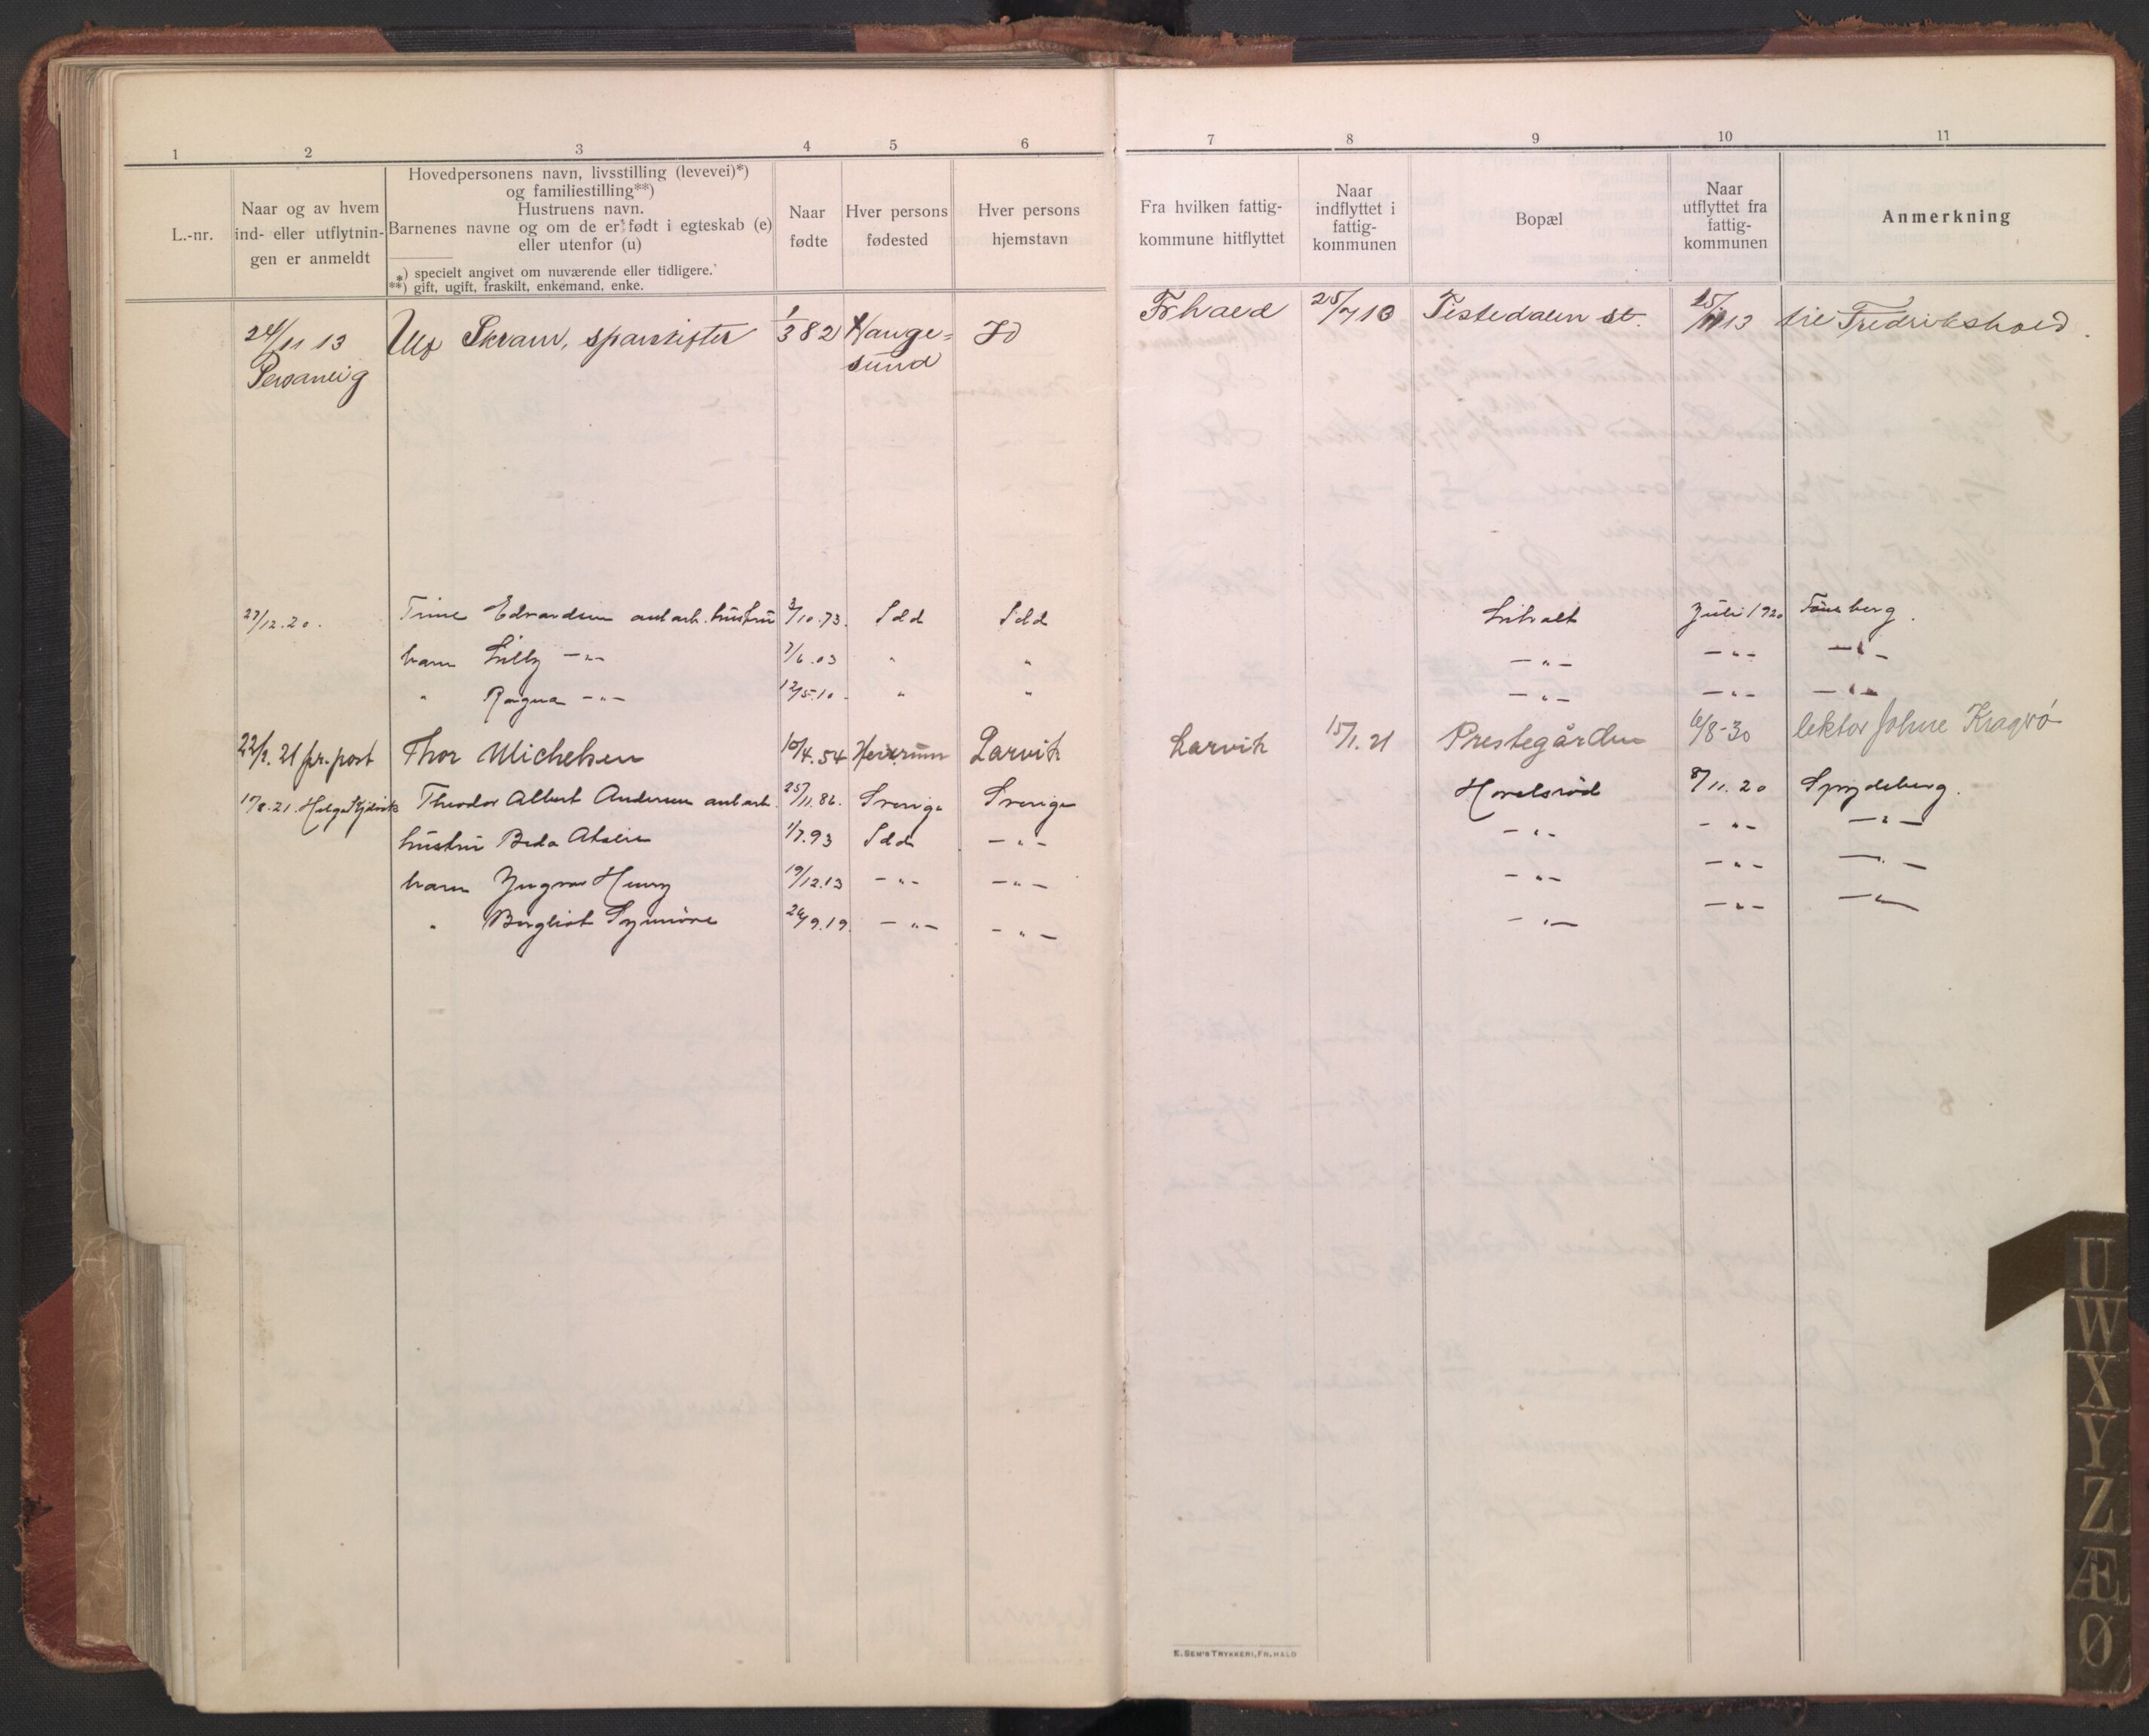 1 2 3 4 5 6 7 8 9 10 11
L.-nr.
Naar og av hvem
ind- eller utflytnin-
gen er anmeldt
Hovedpersonens navn, livsstilling (levevei)*)
og familiestilling**)
Hustruens navn.
Barnenes navne og om de er født i egteskab (e)
eller utenfor (u)
*) specielt angivet om nuværende eller tidligere.
**) gift, ugift, fraskilt, enkemand, enke.
Naar
fødte
Hver persons
fødested
Hver persons
hjemstavn
Fra hvilken fattig-
kommune hitflyttet
Naar
indflyttet i
fattig-
kommunen
Bopæl
Naar
utflyttet fra
fattig-
kommunen
Anmerkning
24/11 13 Ulf Skram, 1/3 82 Hauge= Frhald 25/7 13 Tistedalen st. 25/11 13 til Fredrikshald.
Personlig sund
27/12.20. Trine Edvardsen hustru 3/10.73. Idd Idd Juli 1920 Tønsberg.
barn Lilly -"- 7/6.03 " " -"- -"- -"-
" Ragna -"- 12/5.10 " " -"- -"- -"-
22/2.21 pr. post Thor Michelsen 10/4.54 Larvik Larvik 15/1.21 Prestegården 6/8-30 lektor Kragerø
17/8.21. Theodor Albert Andersen 25/11.86. Sverige Sverige 8/11.20 Spydeberg.
hustru Beda 1/7.93 Idd -"- -"- -"- -"-
barn Yngvar Henry 19/12.13 -"- -"- -"- -"- -"-
" Bergliot Synnöve 26/9.19. -"- -"- -"- -"- -"-
E. SEM'S TRYKKERI, FR.HALD
U
W
X
Y
Z
Æ
Ø